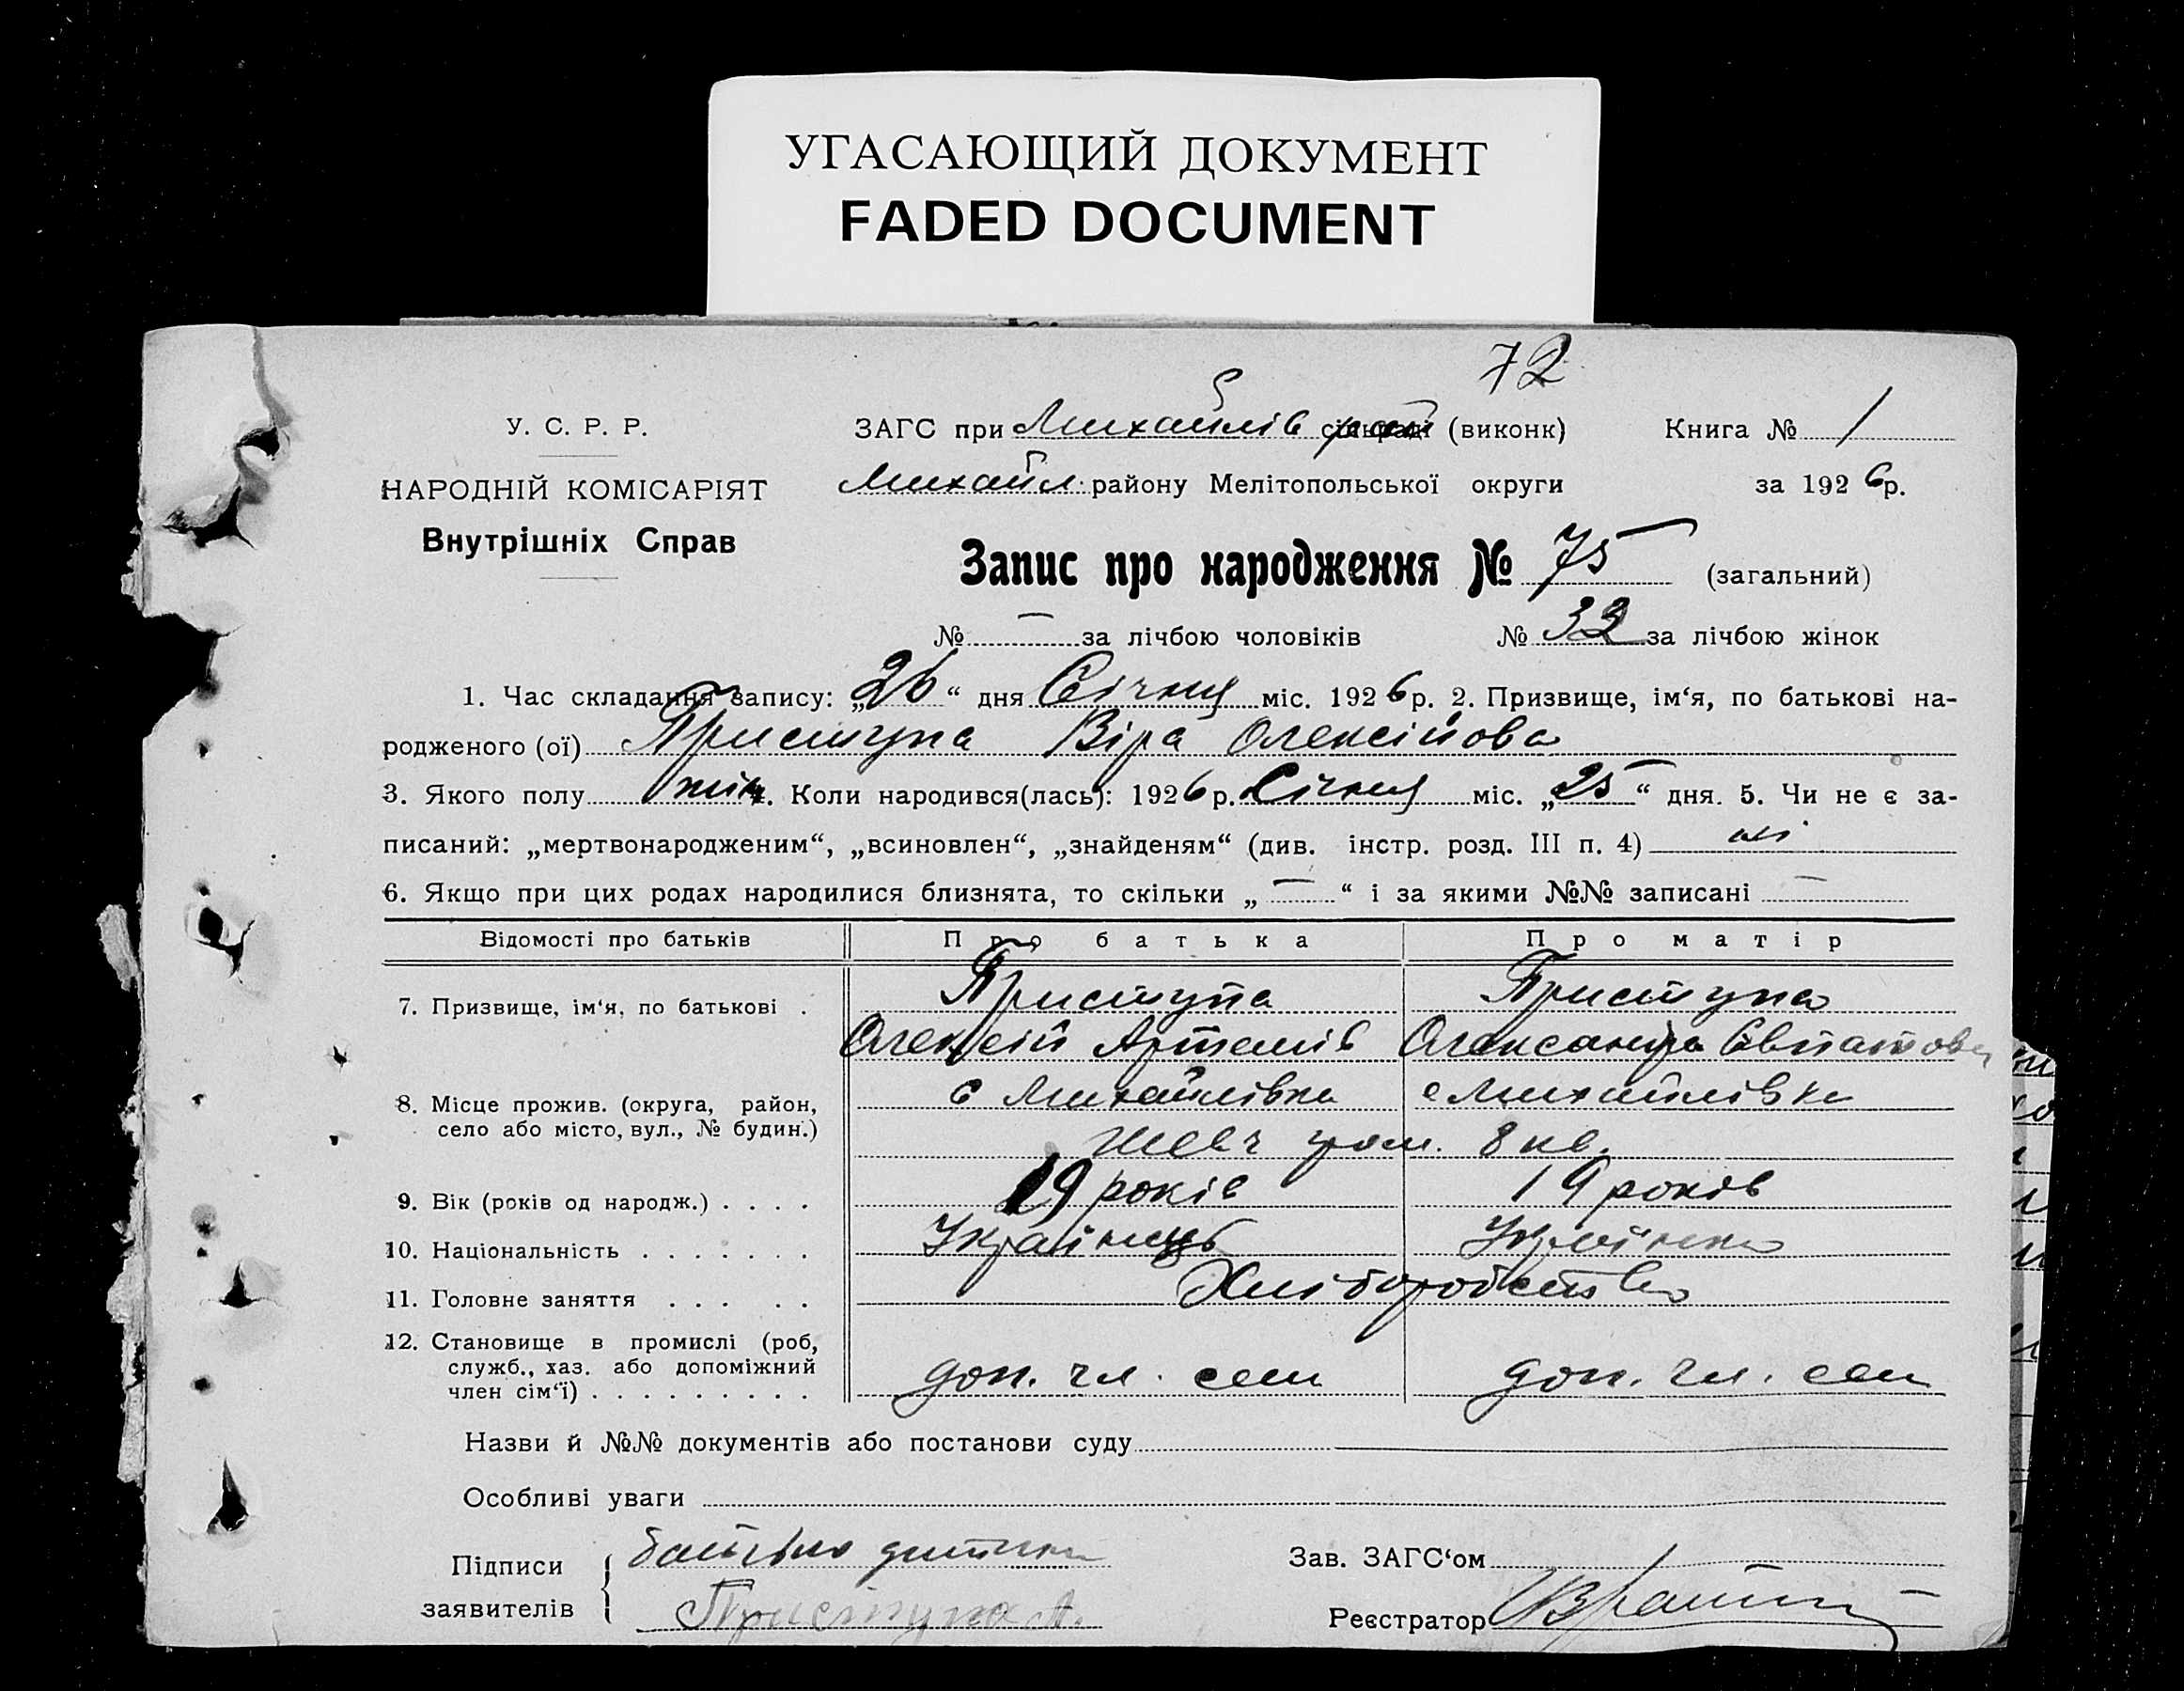 УГАСАЮЩИЙ ДОКУМЕНТ
FADED DOCUMENT
72
У. С. Р. Р.
НАРОДНІЙ КОМІСАРІЯТ
Внутрішніх Справ
ЗАГС при Михайлів рай (виконк)
Книга № 1
Михайл. району Мелітопольської округи
за 1926р.
Запис про народження № 75 (загальний)
№ — за лічбою чоловіків № 32 за лічбою жінок
1. Час складання запису: „26“ дня Січня міс. 1926 р. 2. Призвище, ім‘я, по батькові на-
родженого (ої) Приступа Віра Олексійова
3. Якого полу жін. 4. Коли народився(лась): 1926 р. Січня міс. „25“ дня. 5. Чи не є за-
писаний: „мертвонародженим“, „всиновлен“, „знайденям“ (див. інстр. розд. III п. 4) ні
6. Якщо при цих родах народилися близнята, то скільки „ — “ і за якими №№ записані —
Відомості про батьків Про батька Про матір
7. Призвище, ім‘я, по батькові . Приступа Приступа
Олексій Артемів Олександра
8. Місце прожив. (округа, район, с Михайлівка с Михайлівка
село або місто, вул., № будин.) Шевч гром. 8 кв.
9. Вік (років од народж.) . . . . 19 років 19 років
10. Національність . . . . . . . Українець Українка
11. Головне заняття . . . . . Хліборобство
12. Становище в промислі (роб,
служб., хаз. або допоміжний
член сім‘ї) . . . . . . . . . доп. чл. сем доп. чл. сем
Назви й №№ документів або постанови суду
Особливі уваги
Підписи батько дитини
заявителів Приступа А.
Зав. ЗАГС‘ом
Реєстратор